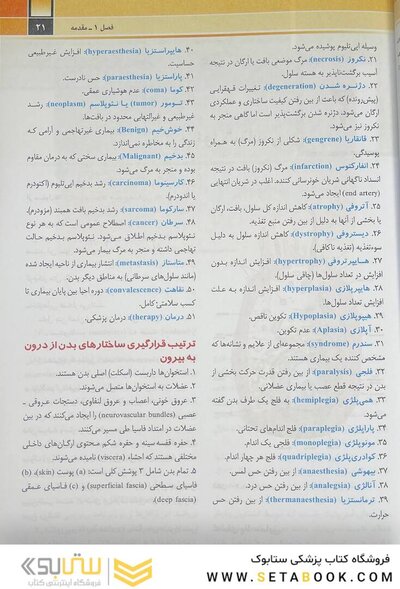 فصل ۱ ـ مقدمه
۲۱
وسیله اپی‌تلیوم پوشیده می‌شود.
۲۱. نکروز (necrosis): مرگ موضعی بافت یا ارگان در نتیجه
آسیب برگشت‌ناپذیر به هسته سلول.
۲۲. دژنره شدن (degeneration): تغییرات قهقرایی
(پیش‌رونده) که باعث از بین رفتن کیفیت ساختاری و عملکردی
ارگان می‌شود، دژنره شدن برگشت‌پذیر است اما گاهی منجر به
نکروز نیز می‌شود.
۲۳. قانقاریا (gengrene): شکلی از نکروز (مرگ) به همراه
پوسیدگی.
۲۴. انفارکتوس (infarction): مرگ (نکروز) بافت در نتیجه
انسداد ناگهانی شریان خونرسانی کننده؛ اغلب در شریان انتهایی
(end artery) ایجاد می‌شود.
۲۵. آتروفی (atrophy): کاهش اندازه کل سلول، بافت، ارگان
یا بخشی از آنها به دلیل از بین رفتن منبع تغذیه.
۲۶. دیستروفی (dystrophy): کاهش اندازه سلول به دلیل
سوءتغذیه (تغذیه ناکافی).
۲۷. هایپرتروفی (hypertrophy): افزایش اندازه بدون
افزایش در تعداد سلول‌ها (چاقی سلول).
۲۸. هایپرپلازی (hyperplasia): افزایش اندازه به علت
افزایش تعداد سلول‌ها.
۲۹. هیپوپلازی (Hypoplasia): تکوین ناقص.
۳۰. آپلازی (Aplasia): عدم تکوین.
۳۱. سندرم (syndrome): مجموعه‌ای از علایم و نشانه‌ها که
مشخص کننده یک بیماری هستند.
۳۲. فلجی (paralysis): از بین رفتن قدرت حرکت بخشی از
بدن در نتیجه قطع عصب یا بیماری عضلانی.
۳۳. همی‌پلژی (hemiplegia): به فلج یک طرف بدن گفته
می‌شود.
۳۴. پاراپلژی (paraplegia): فلج اندام‌های تحتانی.
۳۵. مونوپلژی (monoplegia): فلجی یک اندام.
۳۶. کوادری‌پلژی (quadriplegia): فلج هر چهار اندام.
۳۷. بیهوشی (anaesthesia): از بین رفتن حس لمس.
۳۸. آنالژی (analgesia): از بین رفتن حس درد.
۳۹. ترمانستزیا (thermanaesthesia): از بین رفتن حس
حرارت.
۴۰. هایپراستزیا (hyperaesthesia): افزایش غیرطبیعی
حساسیت.
۴۱. پاراستزیا (paraesthesia): حس نادرست.
۴۲. کوما (coma): عدم هوشیاری عمقی.
۴۳. تومور (tumor) یا نئوپلاسم (neoplasm): رشد
غیرطبیعی و غیرالتهابی محدود در بافت‌ها.
۴۴. خوش‌خیم (Benign): بیماری غیرتهاجمی و آرامی که
زندگی را به مخاطره نمی‌اندازد.
۴۵. بدخیم (Malignant): بیماری سختی که به درمان مقاوم
بوده و منجر به مرگ می‌شود.
۴۶. کارسینوما (carcinoma): رشد بدخیم اپی‌تلیوم (اکتودرم
یا اندودرم).
۴۷. سارکوما (sarcoma): رشد بدخیم بافت همبند (مزودرم).
۴۸. سرطان (cancer): اصطلاح عمومی است که به هر نوع
نئوپلاسم بدخیم اطلاق می‌شود. نئوپلاسم بدخیم حالت
تهاجمی داشته و منجر به مرگ بیمار می‌شود.
۴۹. متاستاز (metastasis): انتشار بیماری از ناحیه ایجاد شده
(مانند سلول‌های سرطانی) به مناطق دیگر بدن.
۵۰. نقاهت (convalescence): دوره احیا بین پایان بیماری تا
کسب سلامتی کامل.
۵۱. درمان (therapy): درمان پزشکی.
ترتیب قرارگیری ساختارهای بدن از درون
به بیرون
۱. استخوان‌ها داربست (اسکلت) اصلی بدن هستند.
۲. عضلات به استخوان‌ها متصل می‌شوند.
۳. عروق خونی، اعصاب و عروق لنفاوی، دستجات عروقی ـ
عصبی (neurovascular bundles) را ایجاد می‌کنند که در بین
عضلات در امتداد فاسیا طی مسیر می‌کنند.
۴. حفره قفسه سینه و حفره شکم محتوی ارگان‌های داخلی
مختلفی هستند که احشاء (viscera) نامیده می‌شوند.
۵. تمام بدن شامل ۳ پوشش کلی است: (a) پوست (skin)، (b)
فاسیای سطحی (superficial fascia) و (c) فاسیای عمقی
(deep fascia)
فروشگاه کتاب پزشکی ستابوک
WWW.SETABOOK.COM
ستابوک
فروشگاه اینترنتی کتاب